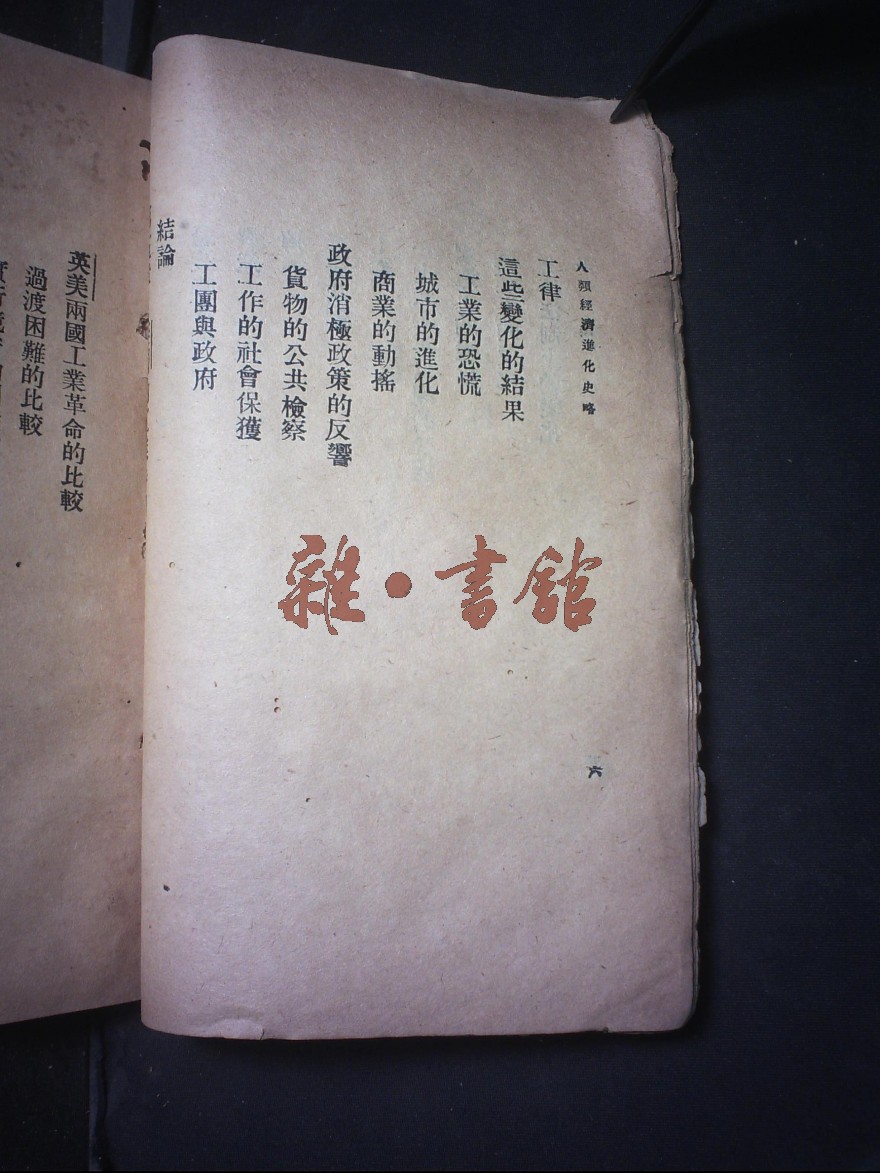 人類經濟進化史略
工律
這些變化的結果
工業的恐慌
城市的進化
商業的動搖
政府消極政策的反響
貨物的公共檢察
工作的社會保獲
工團與政府
結論
六
雜·書館
英美兩國工業革命的比較
過渡困難的比較